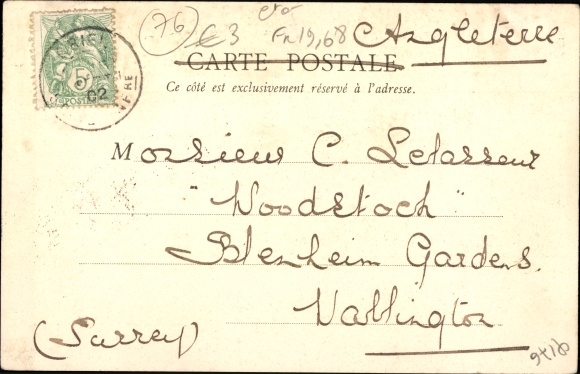 76
€ 3
Fr 19,68
Angleterre
CARTE POSTALE
Ce côté est exclusivement réservé à l'adresse.
5
POSTES
02
Monsieur C. Levasseur
"Woodstock"
Blenheim Gardens.
Wallington
(Surrey)